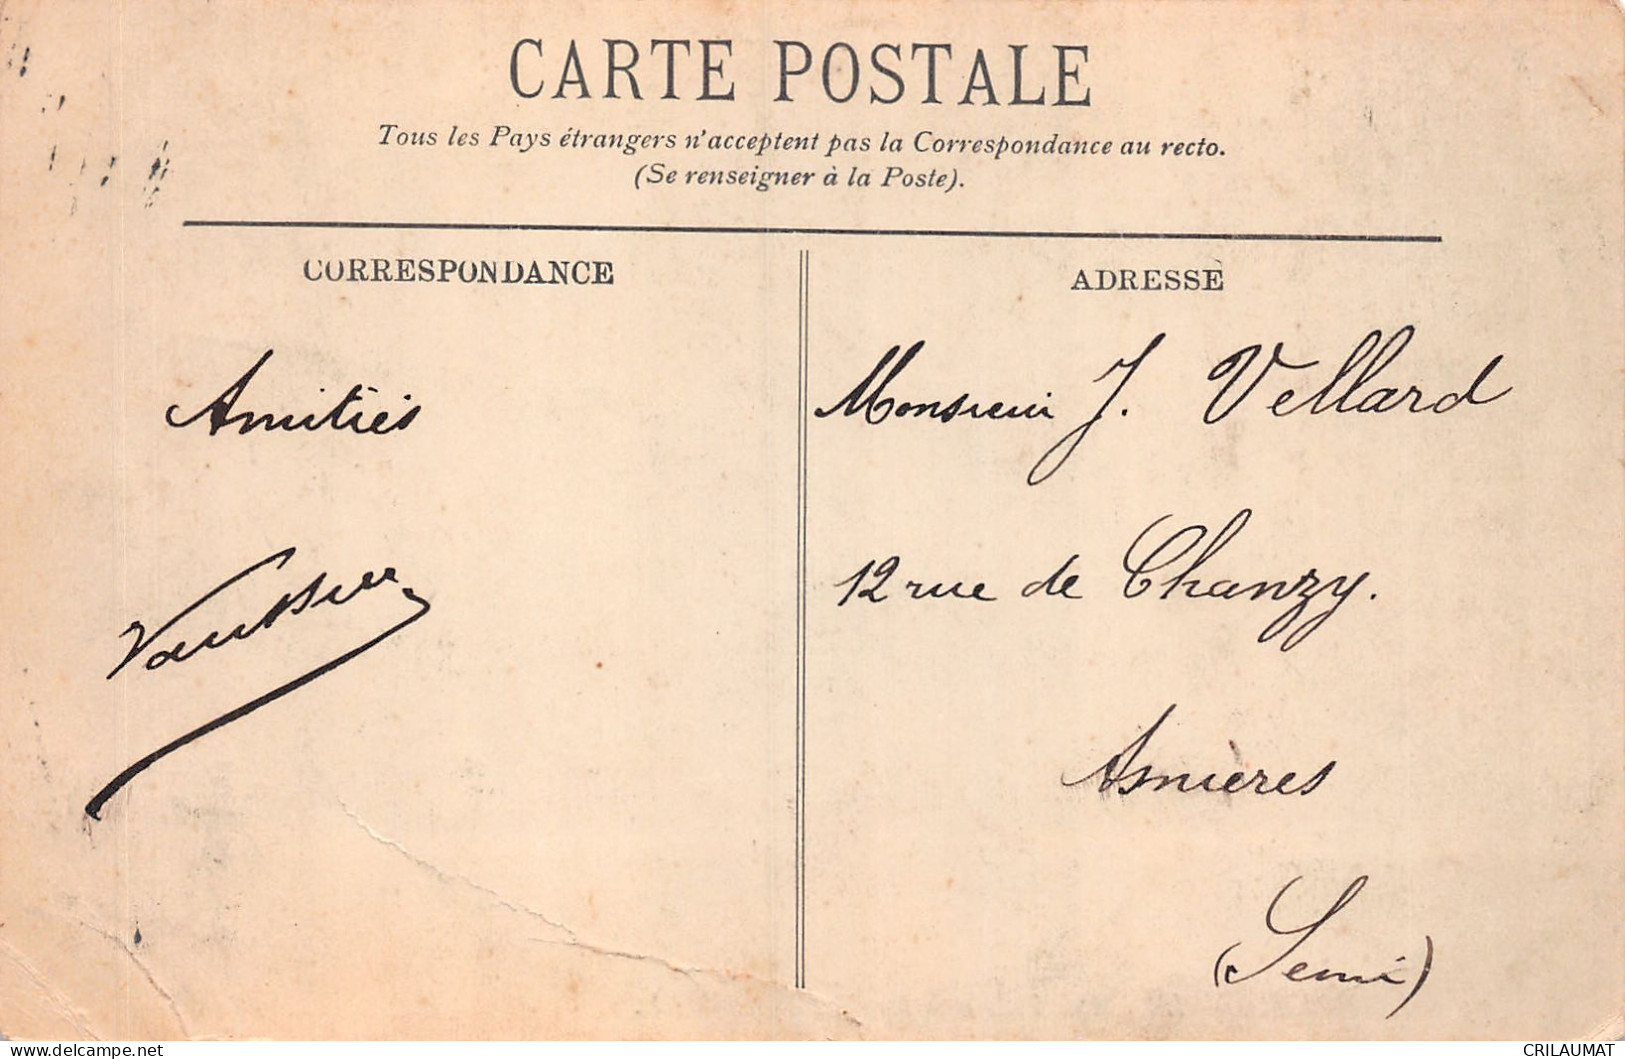 CARTE POSTALE
Tous les Pays étrangers n'acceptent pas la Correspondance au recto.
(Se renseigner à la Poste).
CORRESPONDANCE
Amitiés
ADRESSE
Monsieur J. Vellard
12 rue de Chanzy.
Asnières
(Seine)
delcampe.net
CRILAUMAT